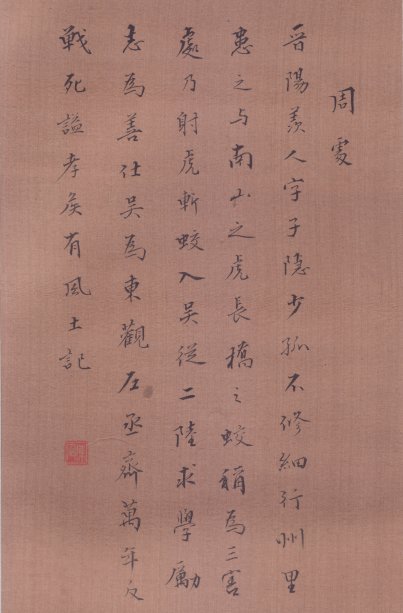 周處
晉陽羨人字子隱少孤不修細行州里
患之与南山之虎長橋之蛟稱為三害
處乃射虎斬蛟入吳從二陸求學勵
志為善仕吳為東觀左丞齊萬年反
戰死謚孝侯有風土記